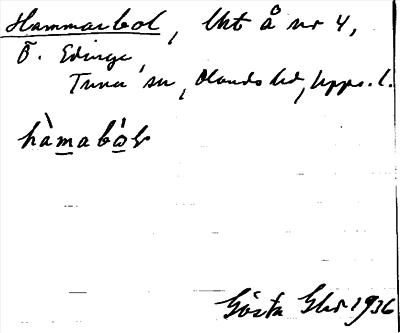 Hammarbol, Uht å nr 4,
Ö. Edinge,
Tuna sn, Olands hd, Upps. l.
hàmabòḷ
Gösta 1936